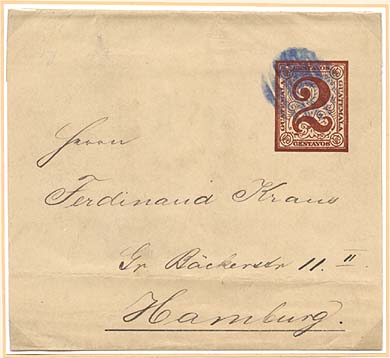 GUATEMALA
GUATEMALA
2
CENTAVOS
Herrn
Ferdinand Kraus
Gr Bäckerstr 11. II
Hamburg.